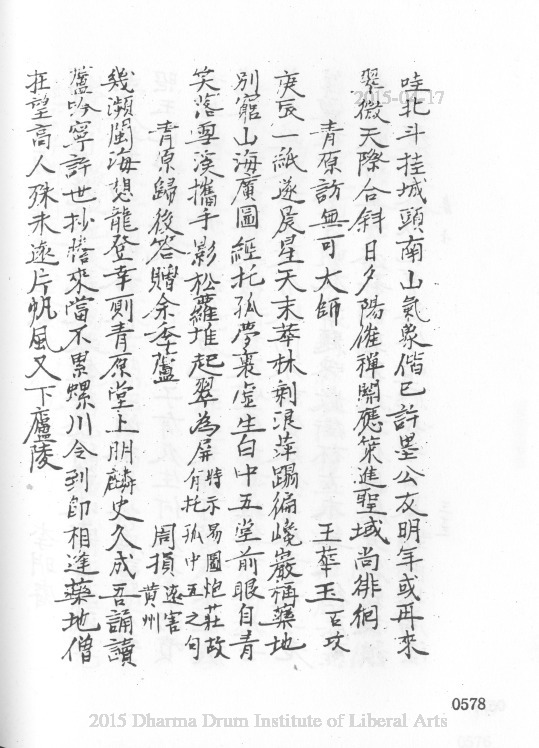 哇北斗挂城頭南山氣象偕已許墨公友明年或再來
翠微天際合斜日夕陽催禪關應策進聖域尚徘徊
青原訪無可大師 王華玉百攻
庚辰一紙遂晨星天末莽林剩浪萍蹋徧巉巖稱藥地
別窮山海廣圖經托孤夢裏虛生白中五堂前眼自青
笑落雪溪攜手影松蘿推起翠為屏時示易圖炮莊故有托孤中五之句
青原歸後答贈余季蘆 周損遠害黄州
幾瀕閩海想龍登幸則青原堂上朋麟史久成吾誦讀
蘆吟寧許世抄謄來當不累螺川令到即相逢藥地僧
狂望高人殊未遠片帆風又下廬陵
0578
2015-04-17
2015 Dharma Drum Institute of Liberal Arts